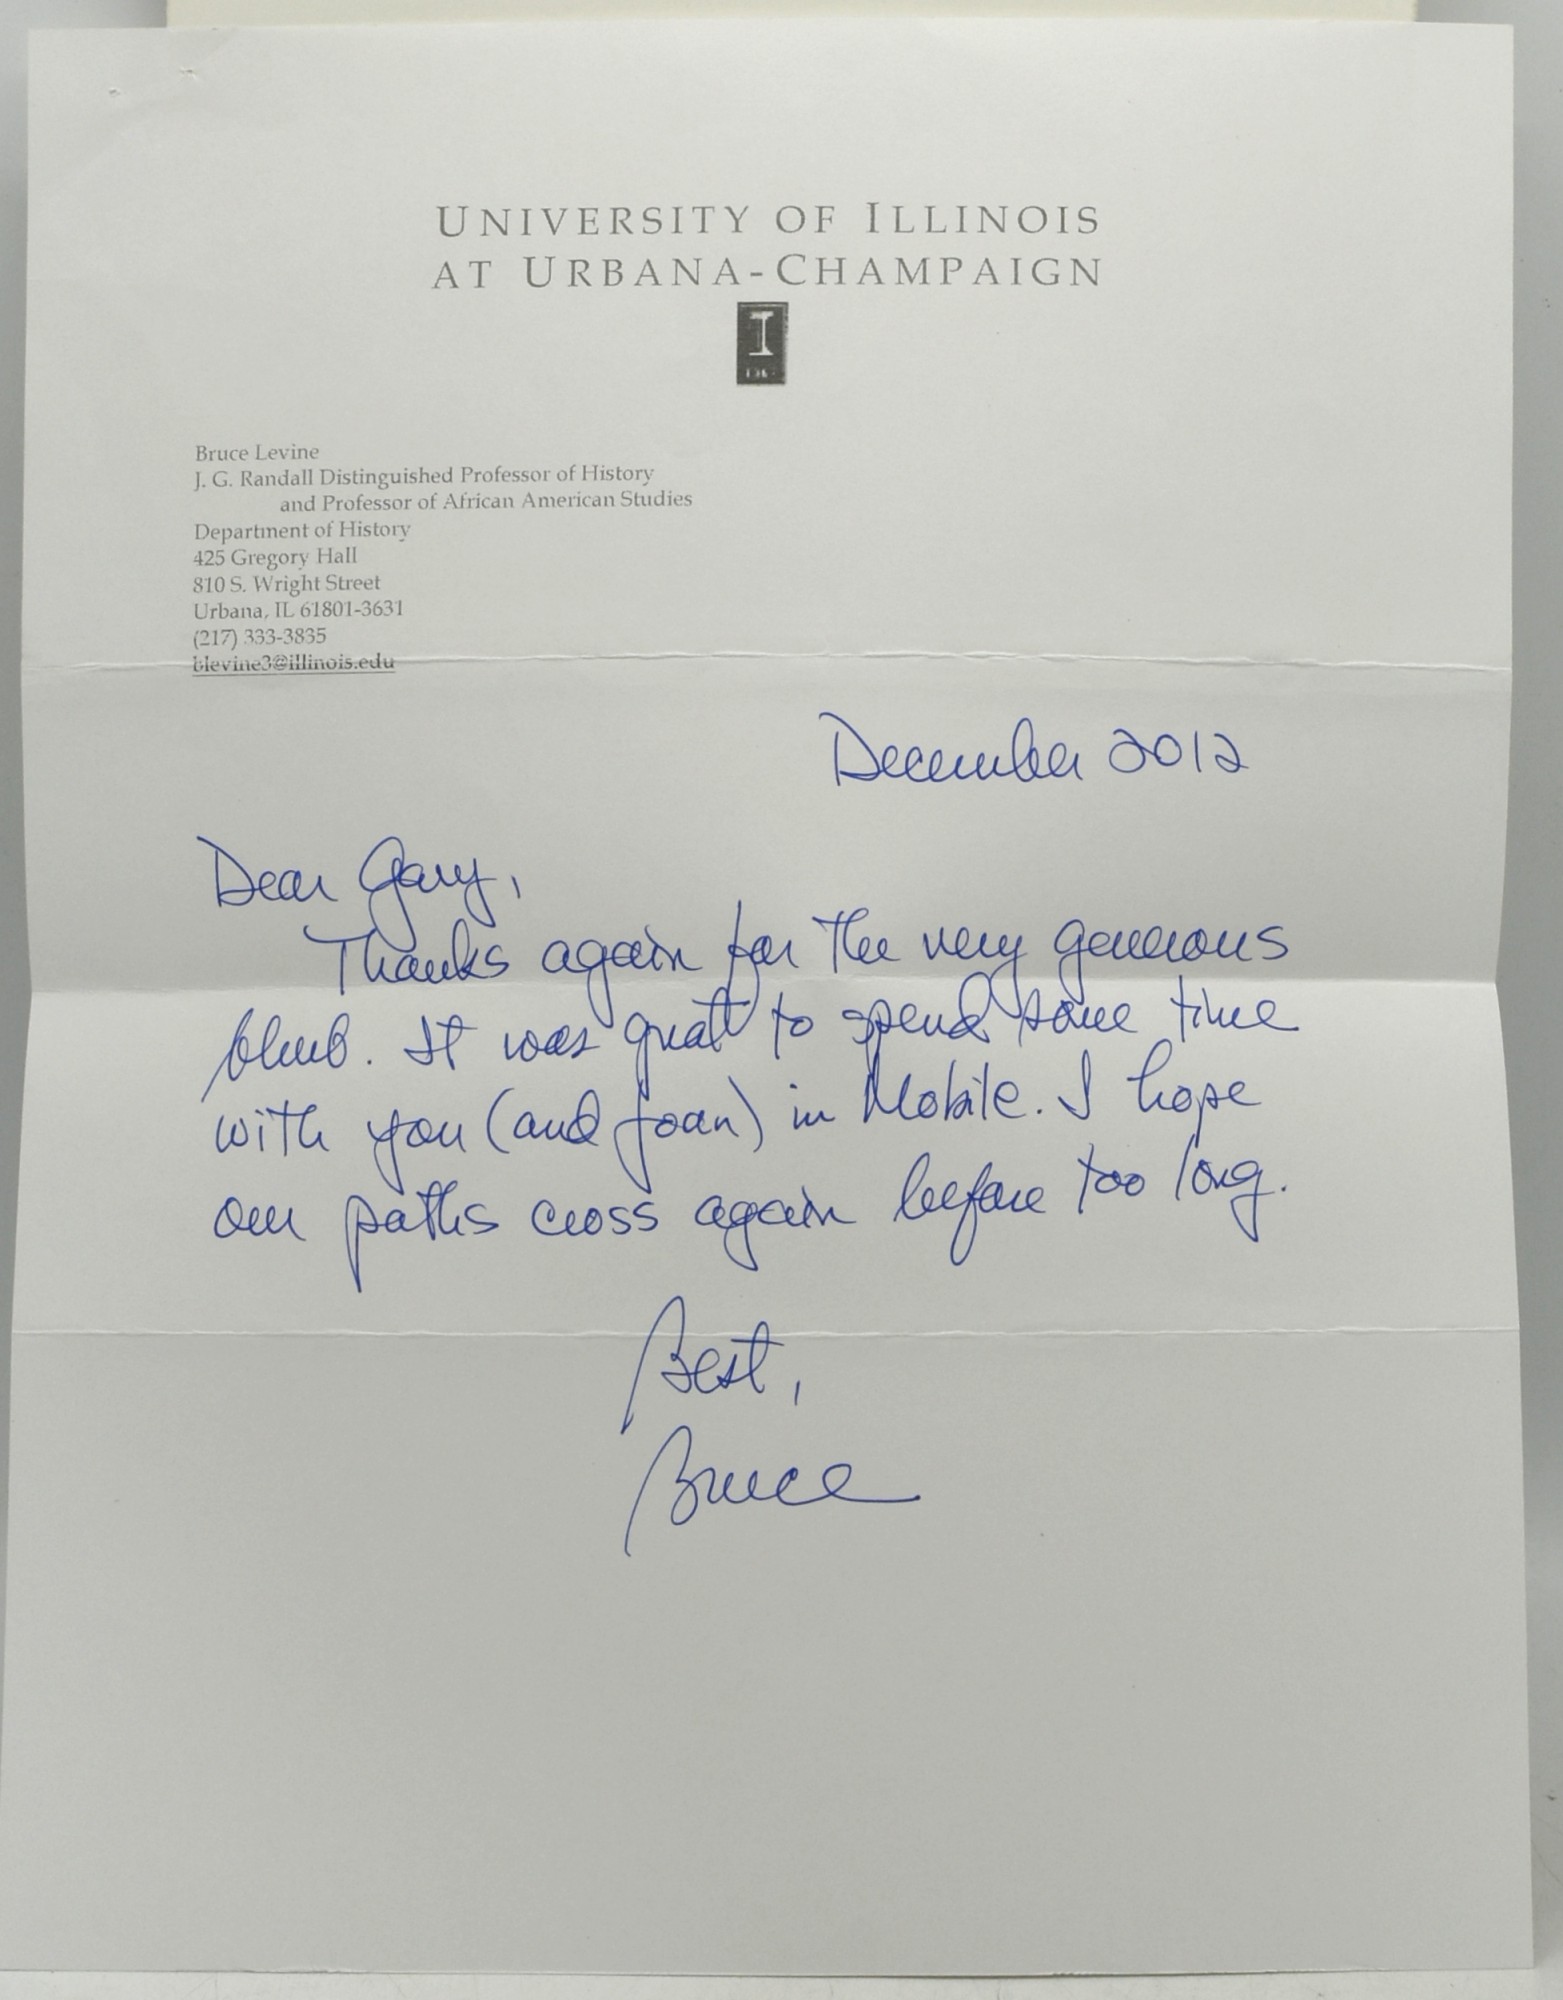 UNIVERSITY OF ILLINOIS
AT URBANA-CHAMPAIGN
I
Bruce Levine
J. G. Randall Distinguished Professor of History
and Professor of African American Studies
Department of History
425 Gregory Hall
810 S. Wright Street
Urbana, IL 61801-3631
(217) 333-3835
blevine3@illinois.edu
December 2012
Dear Gary,
Thanks again for the very generous
blurb. It was great to spend some time
with you (and Joan) in Mobile. I hope
our paths cross again before too long.
Best,
Bruce